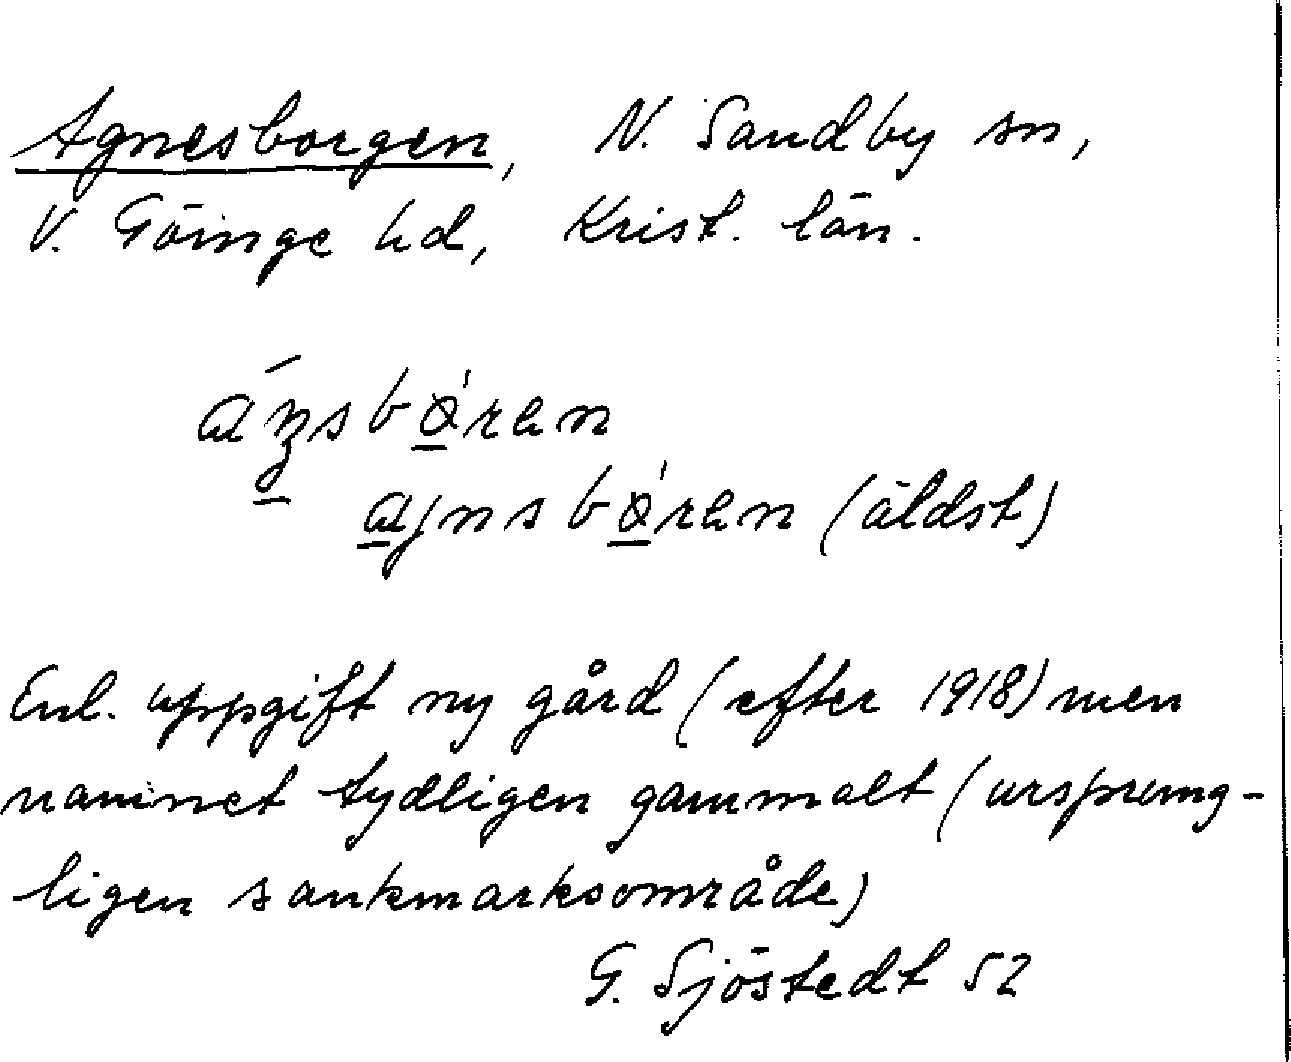 Agnesborgen, N. Sandby sn,
V. Göinge hd, Krist. län.
(äldst)
Enl. uppgift ny gård (efter 1918) men
namnet tydligen gammalt (ursprung-
ligen sankmarksområde)
G. Sjöstedt 52